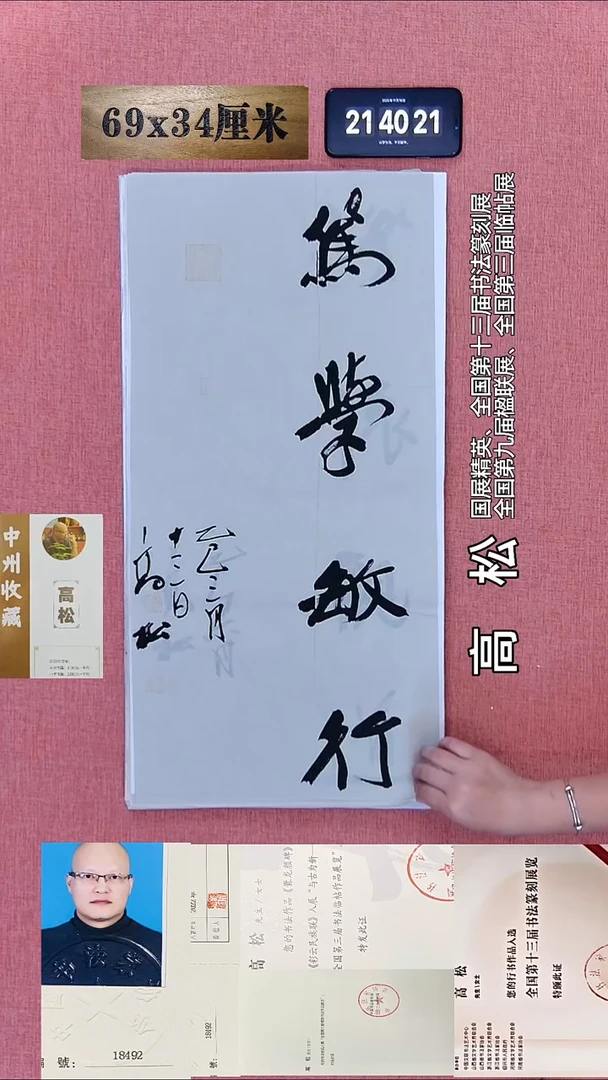 69x34厘米
21 40 21
篤
學
敏
行
乙巳三月
十二日
高松
高松
国展精英、全国第十三届书法篆刻展
全国第九届楹联展、全国第三届临帖展
中州收藏
高松
2022年
高松 先生/女士
您的书法作品《
《彩云民族联》入展“与古为新——
全国第三届书法临帖作品展览”
特发此证
18492
18492
高松
先生\女士
您的行书作品入选
全国第十三届书法篆刻展览
特颁此证